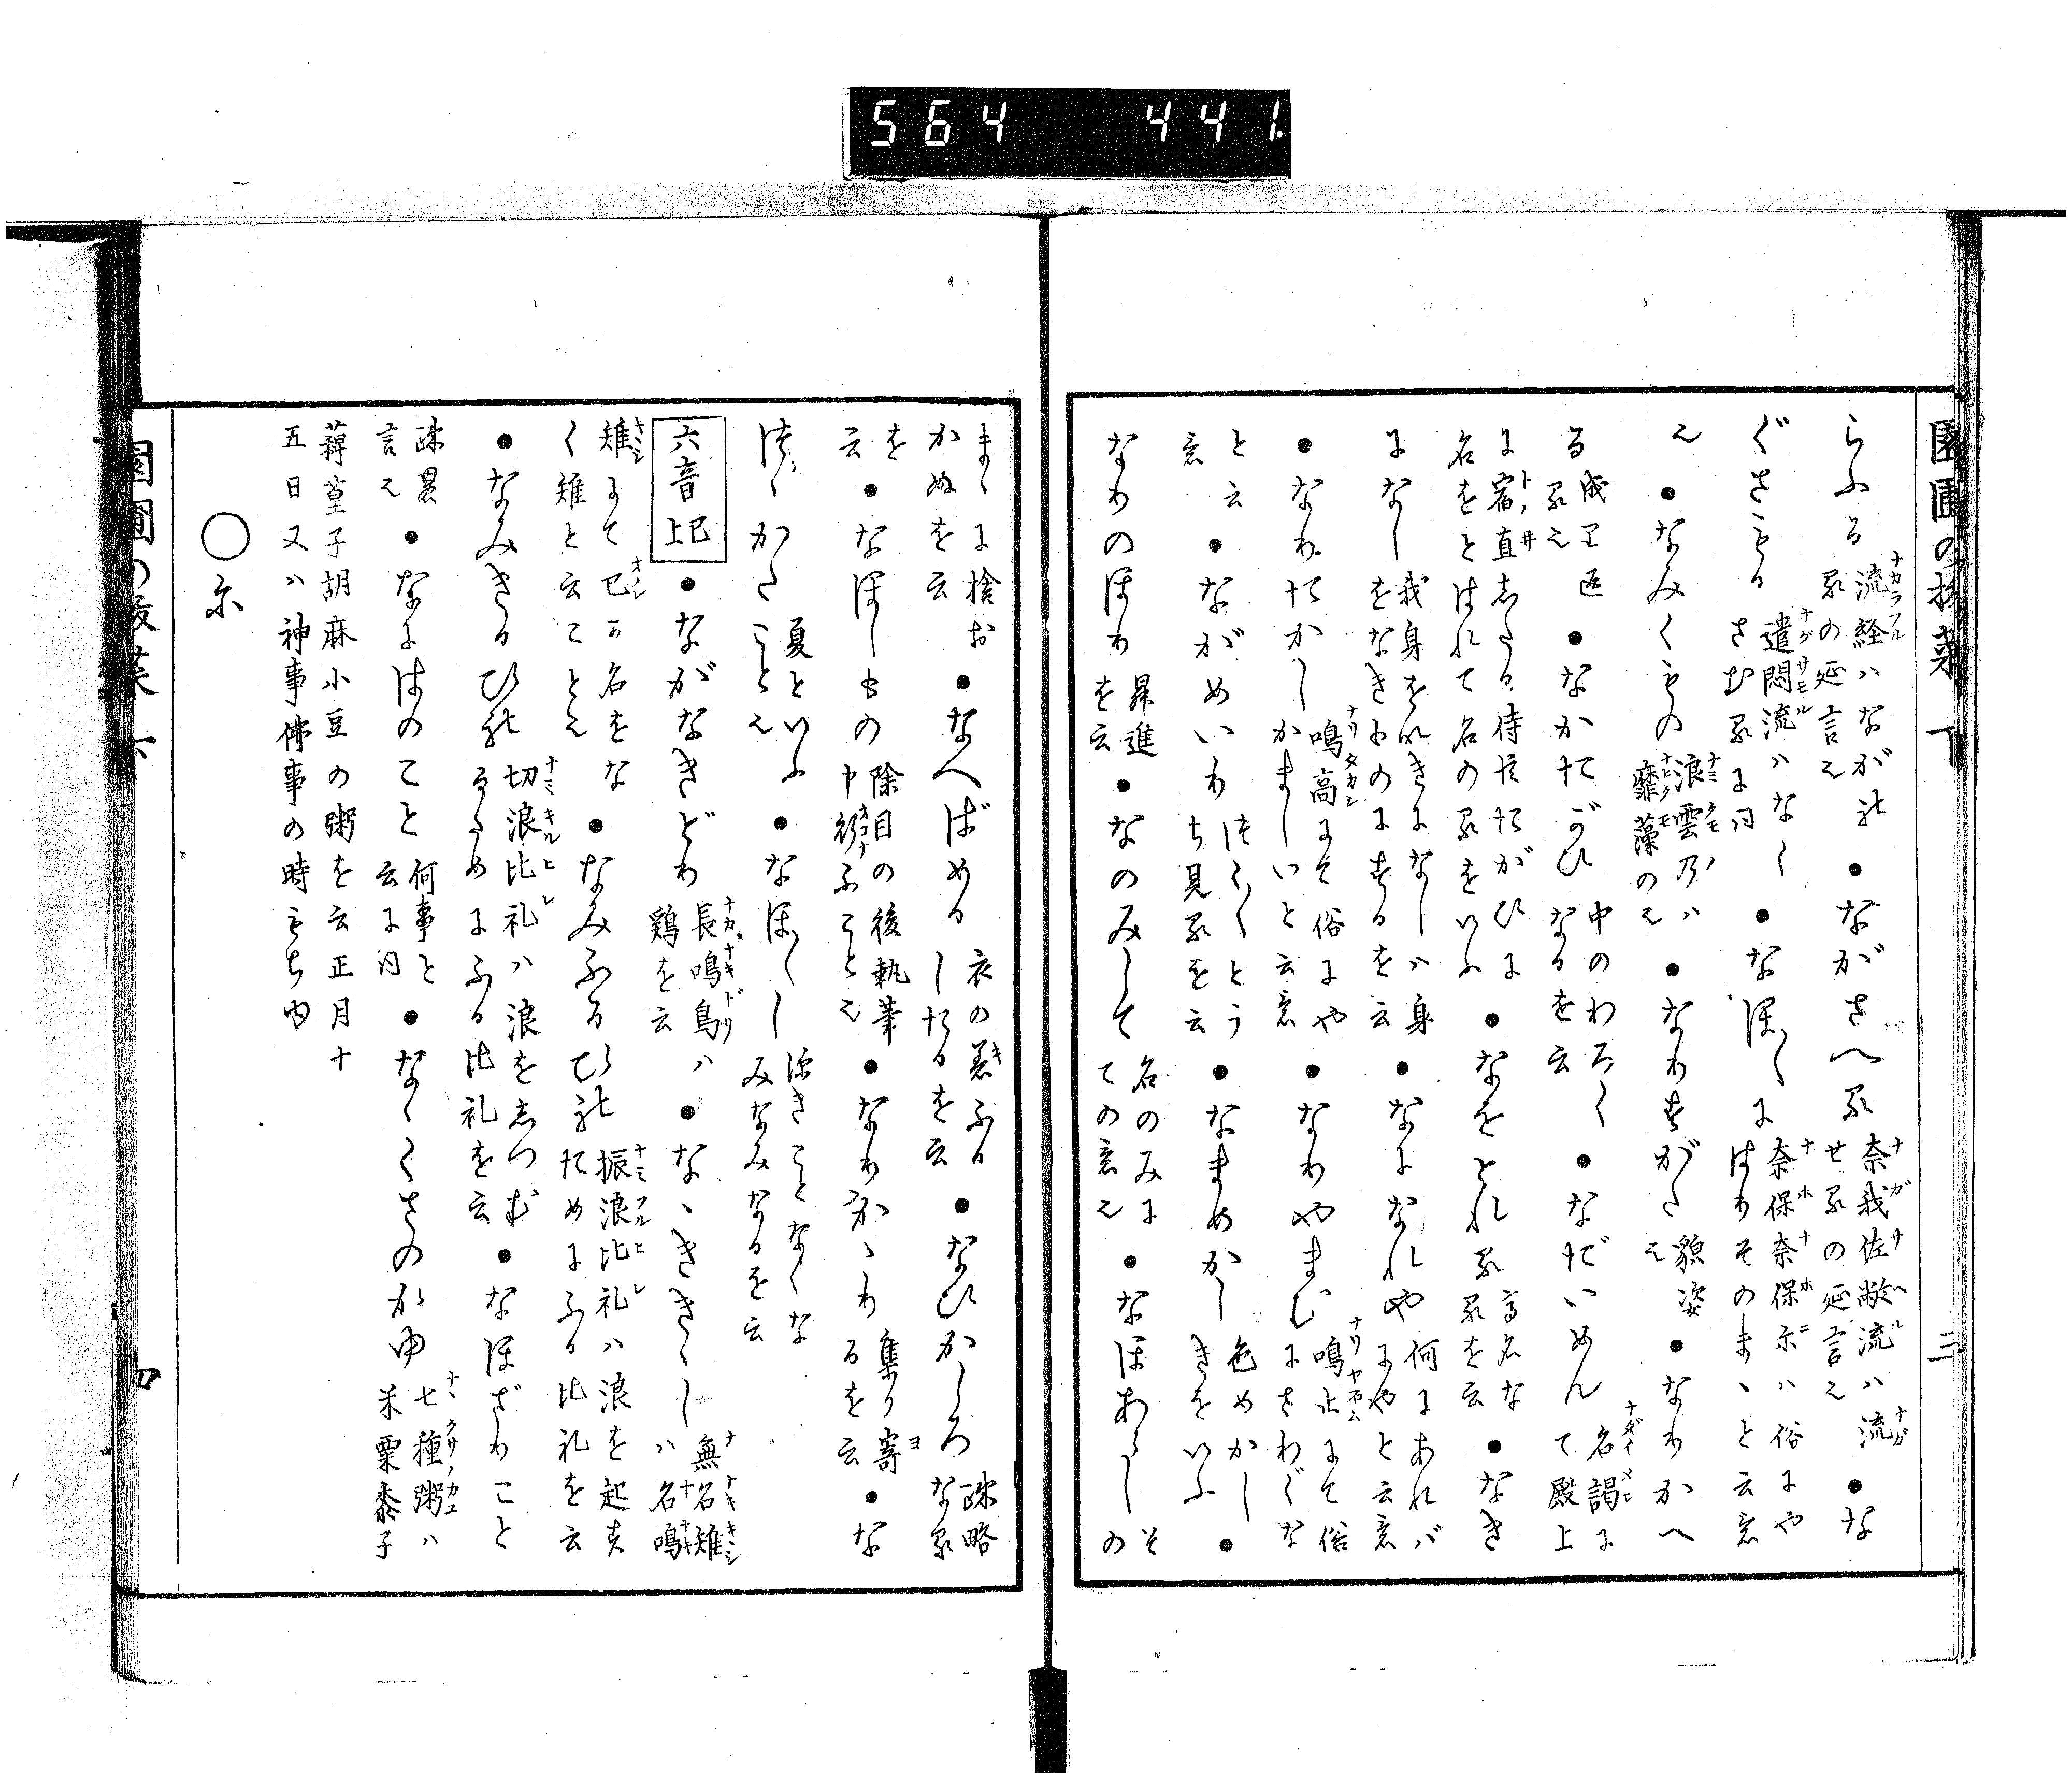 564 441.
らふる 流経ハながれ る の延言 ● ながさへる 奈我佐敝流ハ流 せるの延言 ● な
ぐさもる 遣悶流ハなく さむるに同 ● なほ〱に 奈保奈保尓ハ俗にや はりそのまゝと云意
● なみくもの 浪雲乃ハ 靡藻の ● なりすがた 貌姿 ● なりかへ
る 成返 ● なかたがひ 中のわろく なるを云 ● なだいめん 名謁に て殿上
に宿直したる侍臣たがひに 名をとはれて名のるをいふ ● なをとれる 高名な るを云 ● なき
になし 我身をなきになしハ身 をなきものにするを云 ● なになれや 何にあれバ にやと云意
● なりたかし 鳴高にて俗にや かましいと云意 ● なりやまむ 鳴止にて俗 にさわぐな
と云 意 ● ながめいり つく〲とう ち見るを云 ● なまめかし 色めかし きをいふ ●
なりのぼり 昇進 を云 ● なのみして 名のみに ての意 ● なほあらし そ の
まゝに捨お かぬを云 ● なへばめる 衣の着ふる したるを云 ● なひかしろ 疎略 なる
を 云 ● なほしもの 除目の後執筆 申行ふこと ● なりかゝり 集り寄 るを云 ● な
つかたこと 夏といふ ● なほ〱し 深きことなくな みなみなるを云
六音 上巳 ● ながなきどり 長鳴鳥ハ 鶏を云 ● なゝききゝし 無名雉 ハ名鳴
雉にて己が名をな く雉と云こと ● なみふるひれ 振浪比礼ハ浪を起さ むためにふる比礼を云
● なみきるひれ 切浪比礼ハ浪をしつむ るためにふる比礼を云 ● なほざりこと
疎畧 言 ● なにはのこと 何事と 云に同 ● なゝくさのかゆ 七種粥ハ 米粟黍子
葟子胡麻小豆の粥を云正月十
五日又ハ神事佛事の時もち
○ 尓